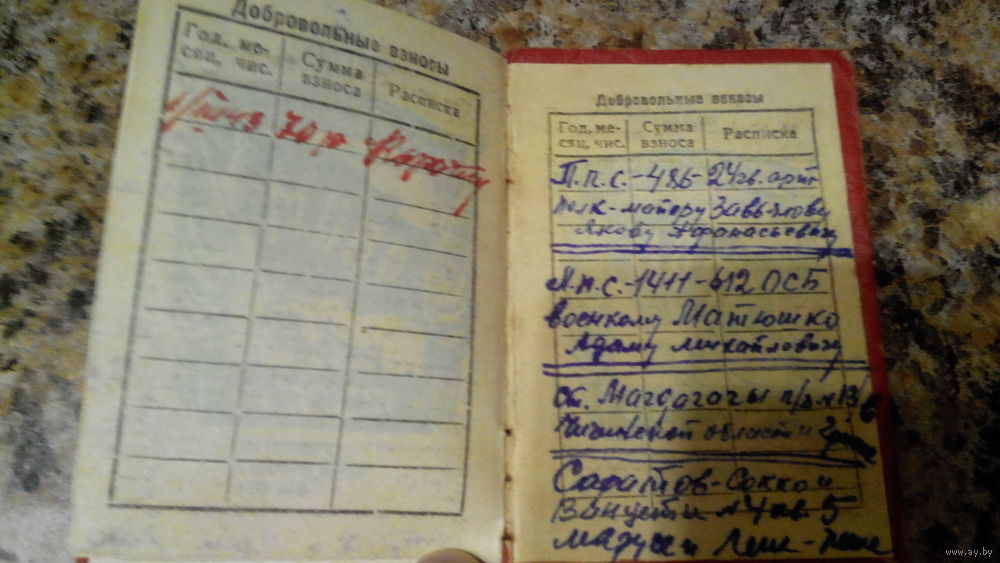 Добровольные взносы
Год, ме-
сяц, чис.
Сумма
взноса
Расписка
70 р
Добровольные взносы
Год, ме-
сяц, чис.
Сумма
взноса
Расписка
П.п.с.-486-24гв. арт
полк-майору Завьялову
Якову Афонасьевичу
П.п.с.-1411-612 ОСБ
военкому Матюшко
Адаму Михайловичу
ст. Магдагачи п/я
Читинской области
Саратов-Сакко и
Ванцети 4 кв. 5
Марусе и
www.ay.by